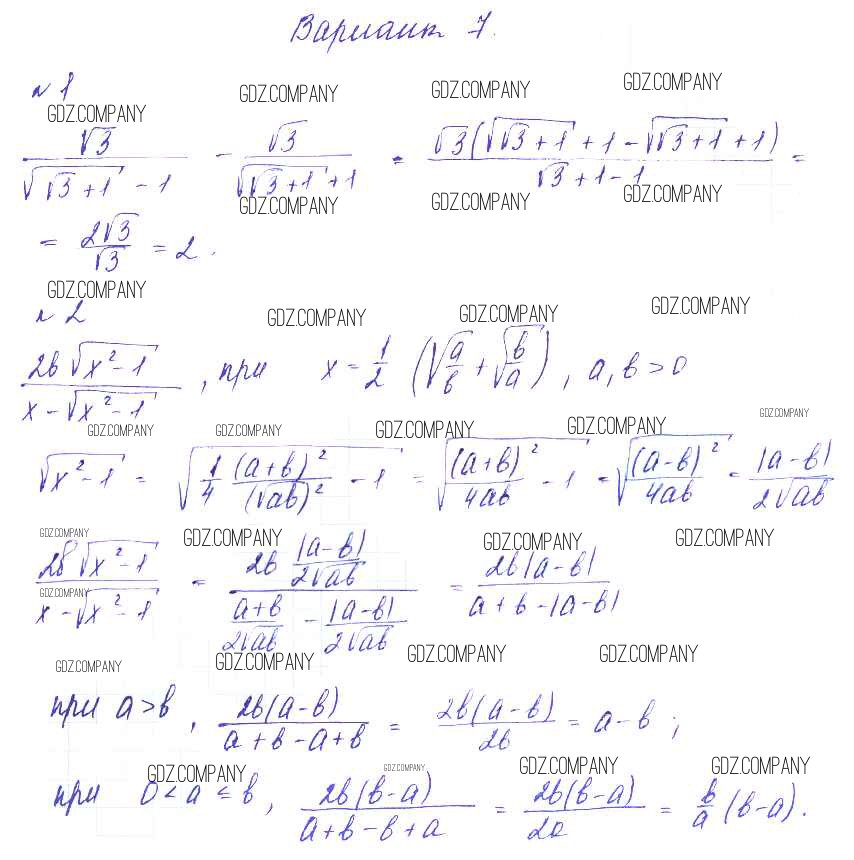 Вариант 7.
№1
GDZ.COMPANY GDZ.COMPANY GDZ.COMPANY GDZ.COMPANY
√3/(√(√3+1) - 1) - √3/(√(√3+1) + 1) = √3(√(√3+1) + 1 - √(√3+1) + 1)/(√3+1-1) =
GDZ.COMPANY GDZ.COMPANY GDZ.COMPANY
= 2√3/√3 = 2.
GDZ.COMPANY
№2
GDZ.COMPANY GDZ.COMPANY GDZ.COMPANY
2b√(x²-1)/(x-√(x²-1)), при x = 1/2 (√(a/b) + √(b/a)), a, b > 0
GDZ.COMPANY GDZ.COMPANY GDZ.COMPANY GDZ.COMPANY GDZ.COMPANY
√(x²-1) = √(1/4 (a+b)²/(√ab)² - 1) = √((a+b)²/4ab - 1) = √((a-b)²/4ab) = |a-b|/2√ab
GDZ.COMPANY GDZ.COMPANY GDZ.COMPANY GDZ.COMPANY
2b√(x²-1)/(x-√(x²-1)) = (2b |a-b|/2√ab)/((a+b)/2√ab - |a-b|/2√ab) = 2b|a-b|/(a+b-|a-b|)
GDZ.COMPANY
GDZ.COMPANY GDZ.COMPANY GDZ.COMPANY GDZ.COMPANY
при a>b, 2b(a-b)/(a+b-a+b) = 2b(a-b)/2b = a-b;
GDZ.COMPANY GDZ.COMPANY GDZ.COMPANY GDZ.COMPANY
при 0<a≤b, 2b(b-a)/(a+b-b+a) = 2b(b-a)/2a = b/a (b-a).